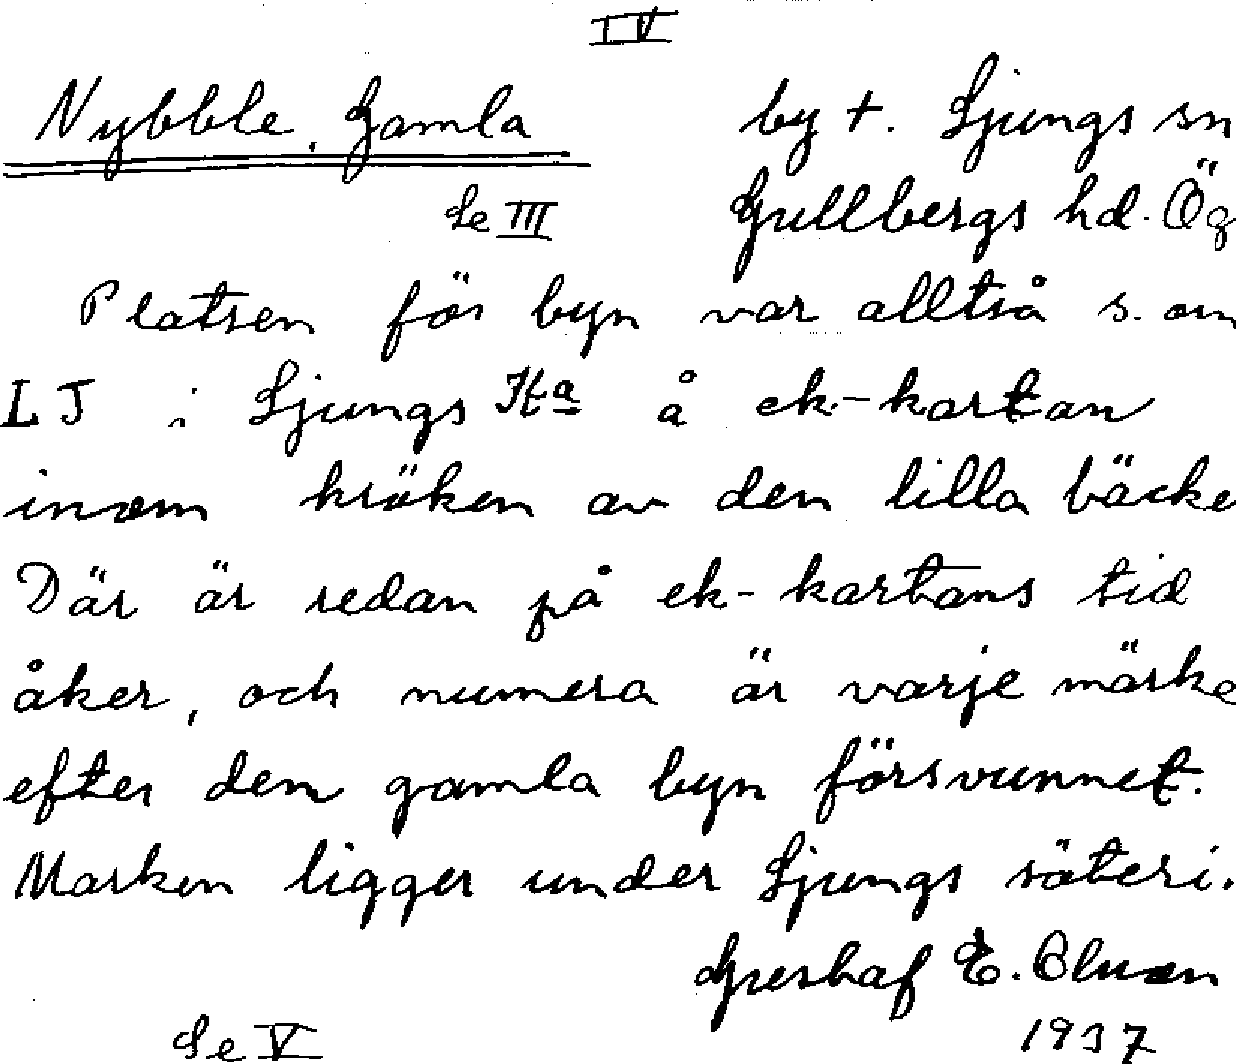 IV
Nybble, Gamla by †. Ljungs sn
Se III Gullbergs hd. Ög
Platsen för byn var alltså s. om
LJ i Ljungs Ka å ek-kartan
inom kröken av den lilla bäcke
Där är redan på ek-kartans tid
åker, och numera är varje märke
efter den gamla byn försvunnet.
Marken ligger under Ljungs säteri.
Gustaf E. Olsson
Se V 1937